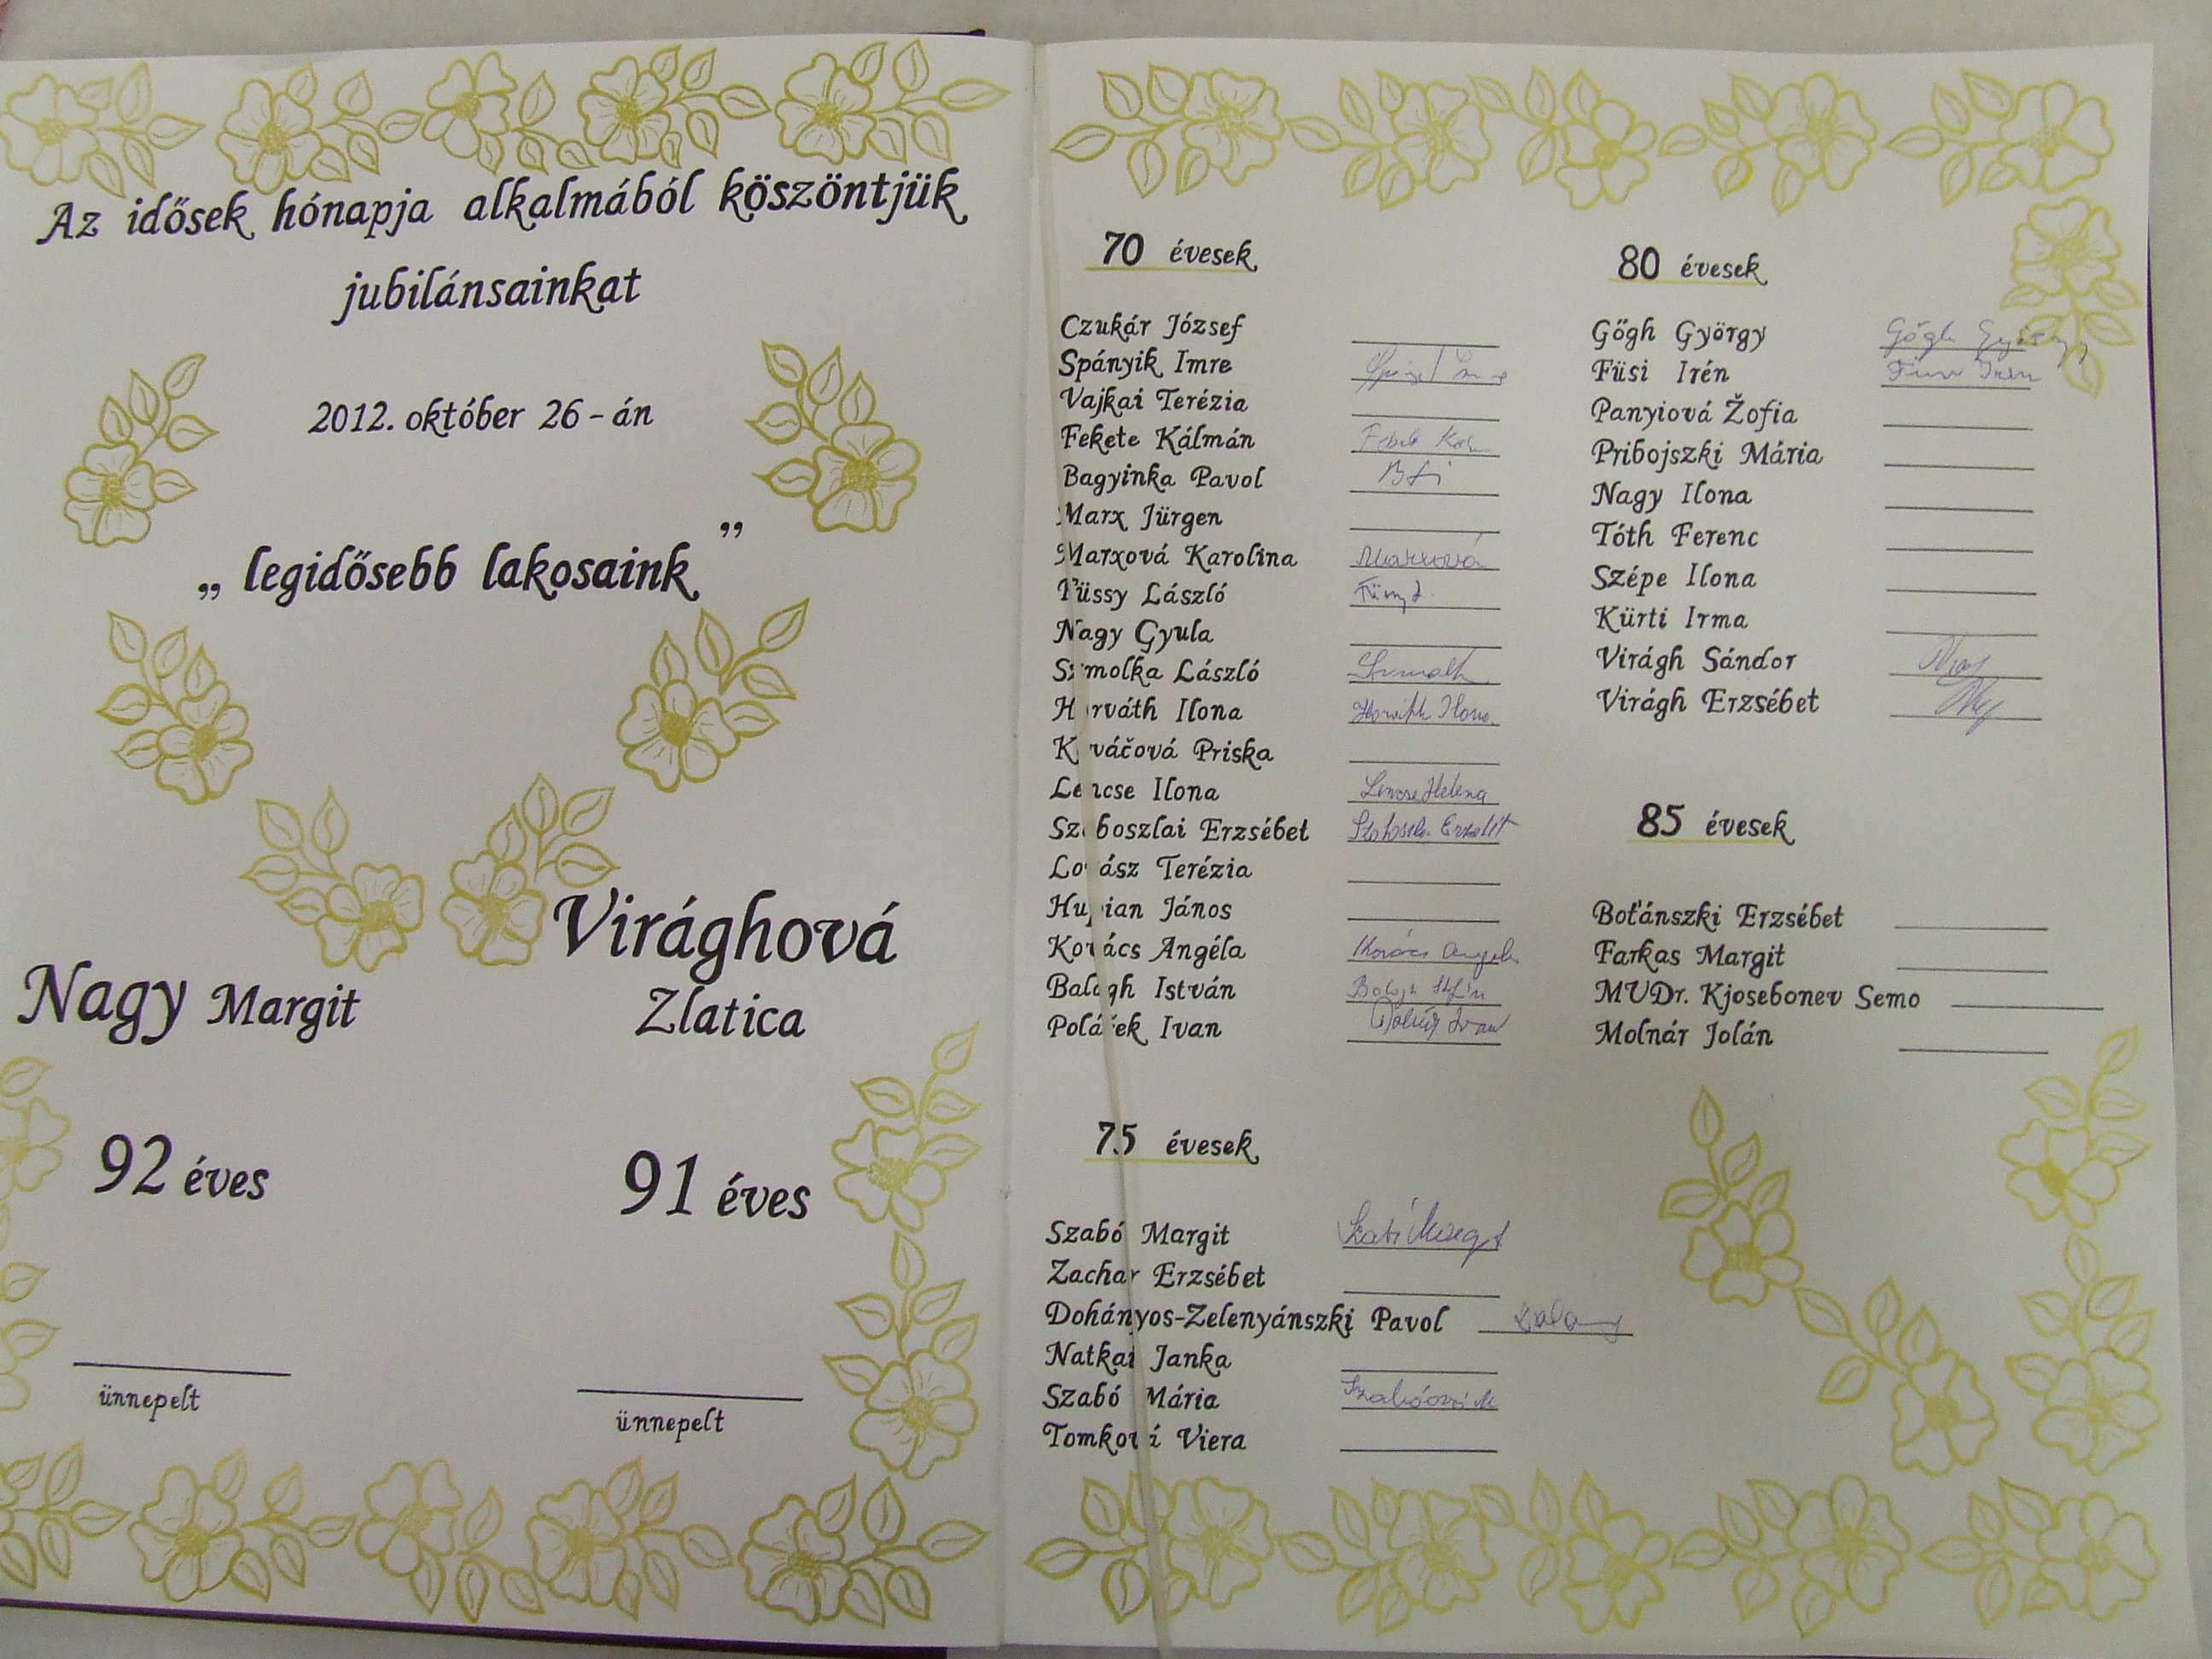 Az idősek hónapja alkalmából köszöntjük
jubilánsainkat
2012. október 26-án
„legidősebb lakosaink”
Nagy Margit
92 éves
ünnepelt
Virághová
Zlatica
91 éves
ünnepelt
70 évesek
Czukár József
Spányik Imre
Vajkai Terézia
Fekete Kálmán
Bagyinka Pavol
Marx Jürgen
Marxová Karolina Marxová
Füssy László
Nagy Gyula
Szmolka László
Horváth Ilona Horváth Ilona
Kováčová Priska
Lencse Ilona Lencse Helena
Szoboszlai Erzsébet
Lovász Terézia
Hupian János
Kovács Angéla Kovács
Balogh István
Polá ek Ivan Ivan
75 évesek
Szabó Margit Szabó Margit
Zachar Erzsébet
Dohányos-Zelenyánszki Pavol
Natkai Janka
Szabó Mária Szabóová M
Tomková Viera
80 évesek
Gőgh György Gőgh György
Füsi Irén Füsi Irén
Panyiová Žofia
Pribojszki Mária
Nagy Ilona
Tóth Ferenc
Szépe Ilona
Kürti Irma
Virágh Sándor
Virágh Erzsébet
85 évesek
Boťánszki Erzsébet
Farkas Margit
MUDr. Kjosebonev Semo
Molnár Jolán